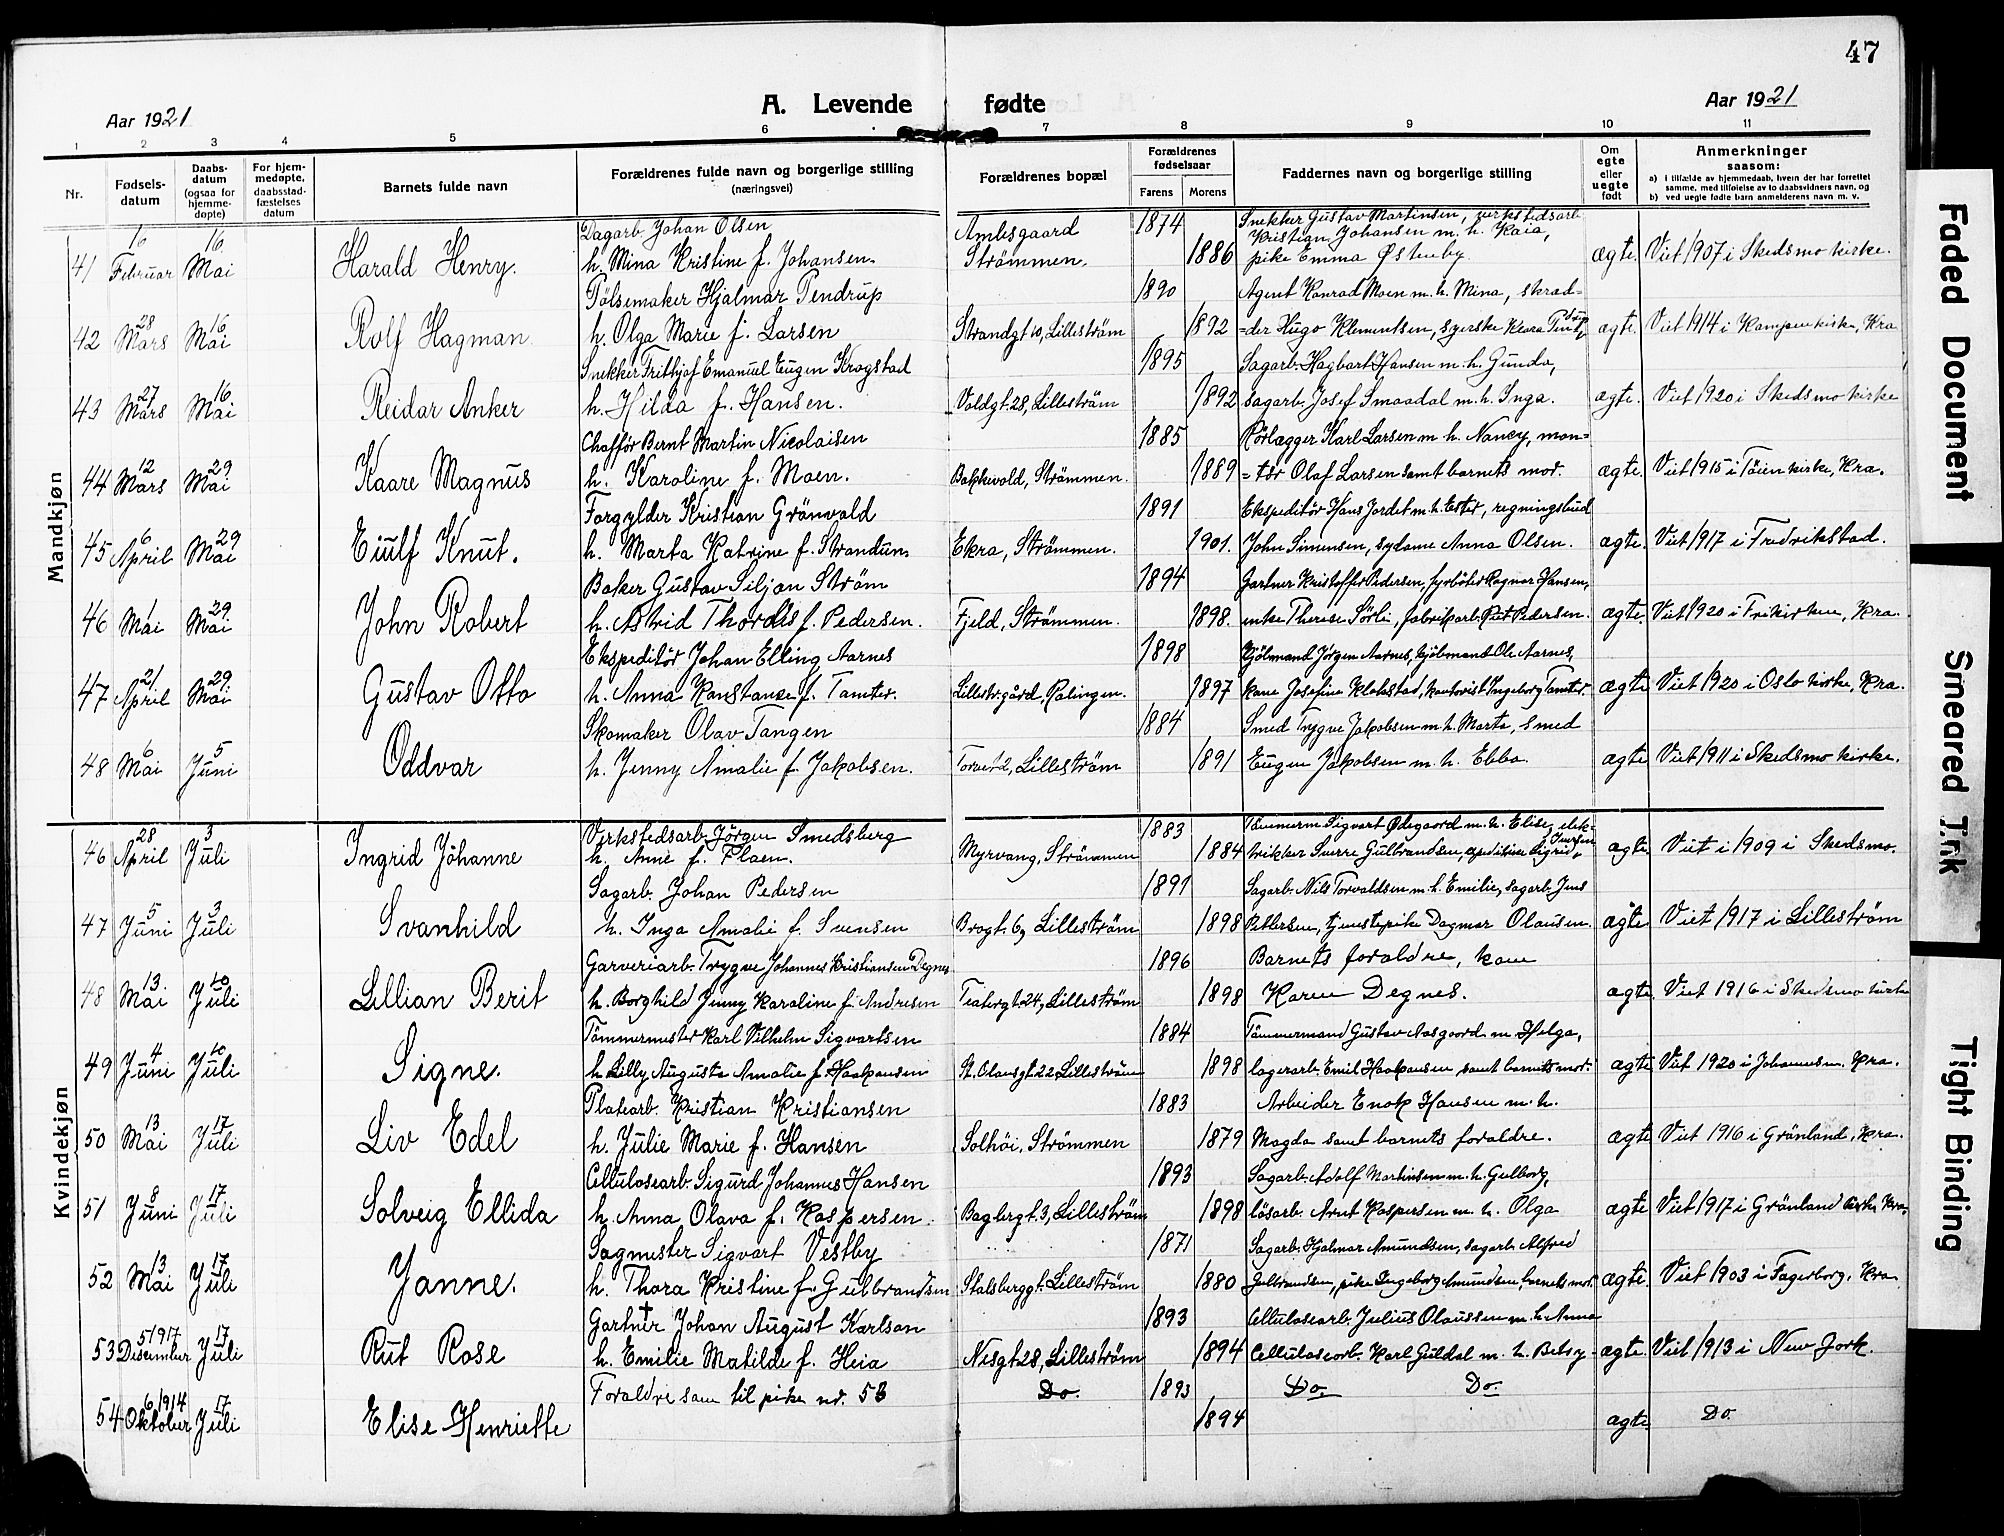 47
Aar 1921
A. Levende fødte
Aar 1921
1 2 3 4 5 6 7 8 9 10 11
Nr.
Fødsels-
datum
Daabs-
datum
(ogsaa for
hjemme-
døpte)
For hjem-
medøpte,
daabsstad-
fæstelses
datum
Barnets fulde navn
Forældrenes fulde navn og borgerlige stilling
(næringsvei)
Forældrenes bopæl
Forældrenes
fødselsaar
Farens Morens
Faddernes navn og borgerlige stilling
Om
egte
eller
uegte
født
Anmerkninger
saasom:
a) i tilfælde av hjemmedaab, hvem der har forrettet
samme, med tilføielse av to daabsvidners navn, og
b) ved uegte fødte barn anmelderens navn m. v.
Mandkjøn
16 16 Dagarb. Johan Olsen Ambesgaard 1874 Snekker Gustav Martinsen, verkstedsarb.
Kristian Johansen m. h. Kaia,
41 Februar Mai Harald Henry. h. Mina Kristine f. Johansen. Strømmen. 1886 pike Emma Østenby ægte. Viet 1907 i Skedsmo kirke.
Pølsemaker Hjalmar Tendrup 1890 Agent Konrad Moen m. h. Mina, skræd=
42 28 Mars 16 Mai Rolf Hagman h. Olga Marie f. Larsen Strandgt 10, Lillestrøm 1892 =der Hugo Klementsen, syerske Klara ægte. Viet 1914 i Kampen kirke, Kra
Snekker Frithjof Emanuel Eugen Krogstad 1895 Sagarb. Hagbart Hansen m. h. Gunda,
43 27 Mars 16 Mai Reidar Anker h. Hilda f. Hansen. Voldgt. 28, Lillestrøm 1892 sagarb. Josef Smaadal m. h. Inga. ægte. Viet 1920 i Skedsmo kirke
Chafför Bernt Martin Nicolaisen 1885 Rørlægger Karl Larsen m. h. Nancy, mon=
44 12 Mars 29 Mai Kaare Magnus h. Karoline f. Moen. Bakkevold, Strømmen. 1889 =tør Olaf Larsen samt barnets mor. ægte. Viet 1915 i Tøien kirke, Kra.
Forgylder Kristian Grönvold 1891 Ekspeditör Hans Jordet m. h. Ester, regningsbud
45 6 April 29 Mai Eiulf Knut. h. Marta Katrine f. Strandun. Ekra, Strømmen. 1901. John Simensen, sydame Anna Olsen. ægte. Viet 1917 i Fredrikstad.
Baker Gustav Siljan Ström 1894 Gartner Kristoffer Pedersen, fyrbøter Ragnar Hansen,
46 1 Mai 29 Mai John Robert h. Astrid Thordis f. Pedersen. Fjeld, Strømmen. 1898. enke Therese Sörli, fabrikarb. Rut Pedersen. ægte. Viet 1920 i Frikirken, Kra.
Ekspeditør Johan Elling Aarnes 1898 Kjølmand Jörgen Aarnes, kjølmand Ole Aarnes,
47 21 April 29 Mai Gustav Otto h. Anna Konstanse f. Tamter. Lillestr.gård, Rælingen. 1897 kone Josefine Klokstad, kontorist Ingeborg Tamter. ægte Viet 1920 i Oslo kirke, Kra.
Skomaker Olav Tangen 1884 Smed Trygve Jakobsen m. h. Marta, smed
48 6 Mai 5 Juni Oddvar h. Jenny Amalie f. Jakobsen. Torvet 2, Lillestrøm 1891 Eugen Jakobsen m. h. Ebba. ægte Viet 1911 i Skedsmo kirke.
Kvindekjøn
Verkstedsarb. Jörgen Smedsberg 1883 Tømmerm. Sigvart Ødegaard m. h. Elise, elek=
46 28 April 3 Juli Ingrid Johanne h. Anne f. Flaen. Myrvang, Strømmen 1884 trikker Sverre Gulbrandsen, Sigrid ægte. Viet i 1909 i Skedsmo.
Sagarb. Johan Pedersen 1891 Sagarb. Nils Torvaldsen m. h. Emilie, sagarb. Jens
47 5 Juni 3 Juli Svanhild h. Inga Amalie f. Svensen Brogt. 6, Lillestrøm 1898 Pettersen, tjenestepike Dagmar Olausen. ægte Viet 1917 i Lillestrøm
Garveriarb. Trygve Johannes Kristiansen Degnes 1896 Barnets forældre, kone
48 13. Mai 10 Juli Lillian Berit h. Borghild Jenny Karoline f. Andresen Teatergt. 24, Lillestrøm 1898 Karen Degnes. ægte. Viet 1916 i Skedsmo kirke
Tømmermester Karl Vilhelm Sigvartsen 1884 Tømmermand Gustav Aasgaard m. Helga,
49 4 Juni 10 Juli Signe. h. Lilly Augusta Amalie f. Haakonsen St. Olavsgt. 22 Lillestrøm 1898 lagerarb. Emil Haakonsen samt barnets mor. ægte Viet 1920 i Johannesm. Kra.
Platearb. Kristian Kristiansen 1883 Arbeider Enok Hansen m. h.
50 13 Mai 17 Juli Liv Edel h. Julie Marie f. Hansen Solhöi, Strømmen 1879 Magda samt barnets forældre. ægte Viet 1916 i Grönland, Kra.
Cellulosearb. Sigurd Johannes Hansen 1893 Sagarb. Adolf Martinsen m. h. Gulborg,
51 8 Juni 17 Juli Solveig Ellida h. Anna Olava f. Kaspersen. Bagergt. 3, Lillestrøm 1898 løsarb. Arnt Kaspersen m. h. Olga ægte Viet 1917 i Grönland kirke Kra,
Sagmester Sigvart Vestby 1871 Sagarb. Hjalmar Amundsen, sagarb. Alfred
52 13 Mai 17 Juli Janne. h. Thora Kristine f. Gulbrandsen Stalsberggt. Lillestrøm 1880 Gulbrandsen, pike Ingeborg Amundsen, barnets mor. ægte. Viet 1903 i Fagerborg, Kra.
Gartner Johan August Karlson 1893 Cellulosearb. Julius Olaussen m. h. Anna
53 5/1917 December 17 Juli Rut Rose h. Emilie Matilde f. Heia Nesgt. 28, Lillestrøm 1894 Cellulosearb. Karl Guldal m. h. Betsy ægte. Viet 1913 i New Jork.
Forældre som til pike nr. 53 Do. 1893 Do Do.
54 6/1914 Oktober 17 Juli Elise Henriette 1894 ægte. Do
Faded Document
Smeared Ink
Tight Binding